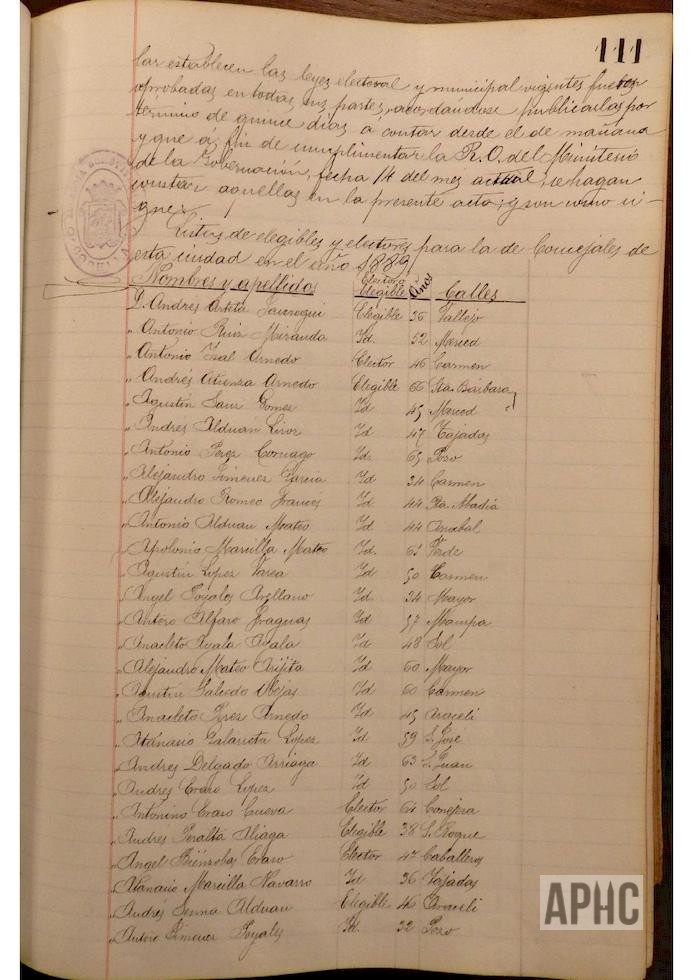 111
lar establecen las leyes electoral y municipal vigentes fueron
aprobadas en todas sus partes, acordándose publicarlas por
término de quince días a contar desde el de mañana
y que á fin de cumplimentar la R.O. del Ministerio
de la Gobernación, fecha 14 del mes actual, se hagan
constar aquellas en la presente acta; y son como si-
gue.
Listas de elegibles y electores para la de Concejales de
esta ciudad en el año 1889
Nombres y apellidos Electoro Elegible Años Calles
D. Andrés Arteta Jauregui Elegible 36 Vallejo
" Antonio Ruiz Miranda Yd. 52 Merced
" Antonio Ysal Arnedo Elector 46 Carmen
" Andrés Atienza Arnedo Elegible 66 Sta. Bárbara
" Agustín Sauri Gomez Yd 45 Merced
" Andres Alduán Liroz Yd 47 Tajadas
" Antonio Perez Cornago Yd. 65 Pozo
" Alejandro Jimenez Garcia Yd 34 Carmen
" Alejandro Romeo Francés Yd. 44 Sta. Maria
" Antonio Alduan Mateo Yd 44
" Apolonio Marcilla Mateo Yd. 61 Verde
" Agustín Lopez Varea Yd 50 Carmen
" Angel Poyales Arellano Yd 34 Mayor
" Antero Alfaro Fraguas Yd 57
" Anacleto Ayala Ayala Yd 48 Sol
" Alejandro Mateo Arijita Yd 60 Mayor
" Agustin Salcedo Yd 60 Carmen
" Anacleto Perez Arnedo Yd 45 Araceli
" Atanasio Galarreta Lopez Yd 59 S. José
" Andres Delgado Arriaga Yd 63 S. Juan
" Andres Eraso Lopez Yd 50 Sol
" Antonino Eraso Cueva Elector 64 Conejera
" Andres Peralta Aliaga Elegible 38 S. Roque
" Angel Biénzobas Eraso Elector 47 Caballeros
" Atanasio Marcilla Navarro Yd 36 Tajadas
" Andrés Serna Alduan Elegible 46 Araceli
" Antero Jimenez Poyales Yd. 32 Pozo
APHC